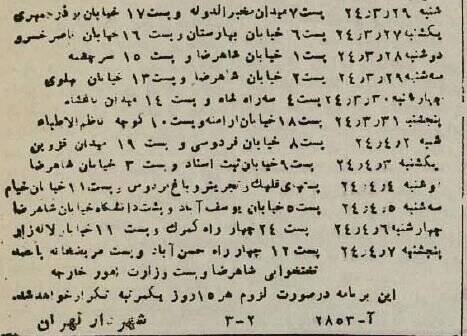 شنبه ۲۴٫۳٫۲۹ پست ۷ میدان مخبرالدوله و پست ۱۷ خیابان بوذرجمهری
یکشنبه ۲۴٫۳٫۲۷ پست ۶ خیابان بهارستان و پست ۱۶ خیابان ناصرخسرو
دوشنبه ۲۴٫۳٫۲۸ پست ۱ خیابان شاهرضا و پست ۱۵ سرچشمه
سه‌شنبه ۲۴٫۳٫۲۹ پست ۲ خیابان شاهرضا و پست ۱۳ خیابان پهلوی
چهارشنبه ۲۴٫۳٫۳۰ پست ۴ سه‌راه شاه و پست ۱۴ میدان باغشاه
پنجشنبه ۲۴٫۳٫۳۱ پست ۱۸ خیابان ارامنه و پست ۱۰ کوچه ناظم‌الاطباء
شنبه ۲۴٫۴٫۲ پست ۸ خیابان فردوسی و پست ۱۹ میدان قزوین
یکشنبه ۲۴٫۴٫۳ پست ۹ خیابان ثبت اسناد و پست ۳ خیابان شاهرضا
دوشنبه ۲۴٫۴٫۴ پستهای قلهک و تجریش و باغ فردوس و پست ۱۱ خیابان خیام
سه شنبه ۲۴٫۴٫۵ پست ۵ خیابان یوسف آباد و پشت دانشگاه خیابان شاهرضا
چهارشنبه ۲۴٫۴٫۶ پست ۲۴ چهار راه گمرک و پست ۱۱ خیابان لاله‌زار
پنجشنبه ۲۴٫۴٫۷ پست ۱۲ چهار راه حسن‌آباد و پست مریضخانه پانصد
تختخوابی شاهرضا و پست وزارت امور خارجه
این برنامه درصورت لزوم هر ۱۵ روز یکمرتبه تکرار خواهد شد
آ-۲۸۵۳ ۲-۳ شهردار تهران